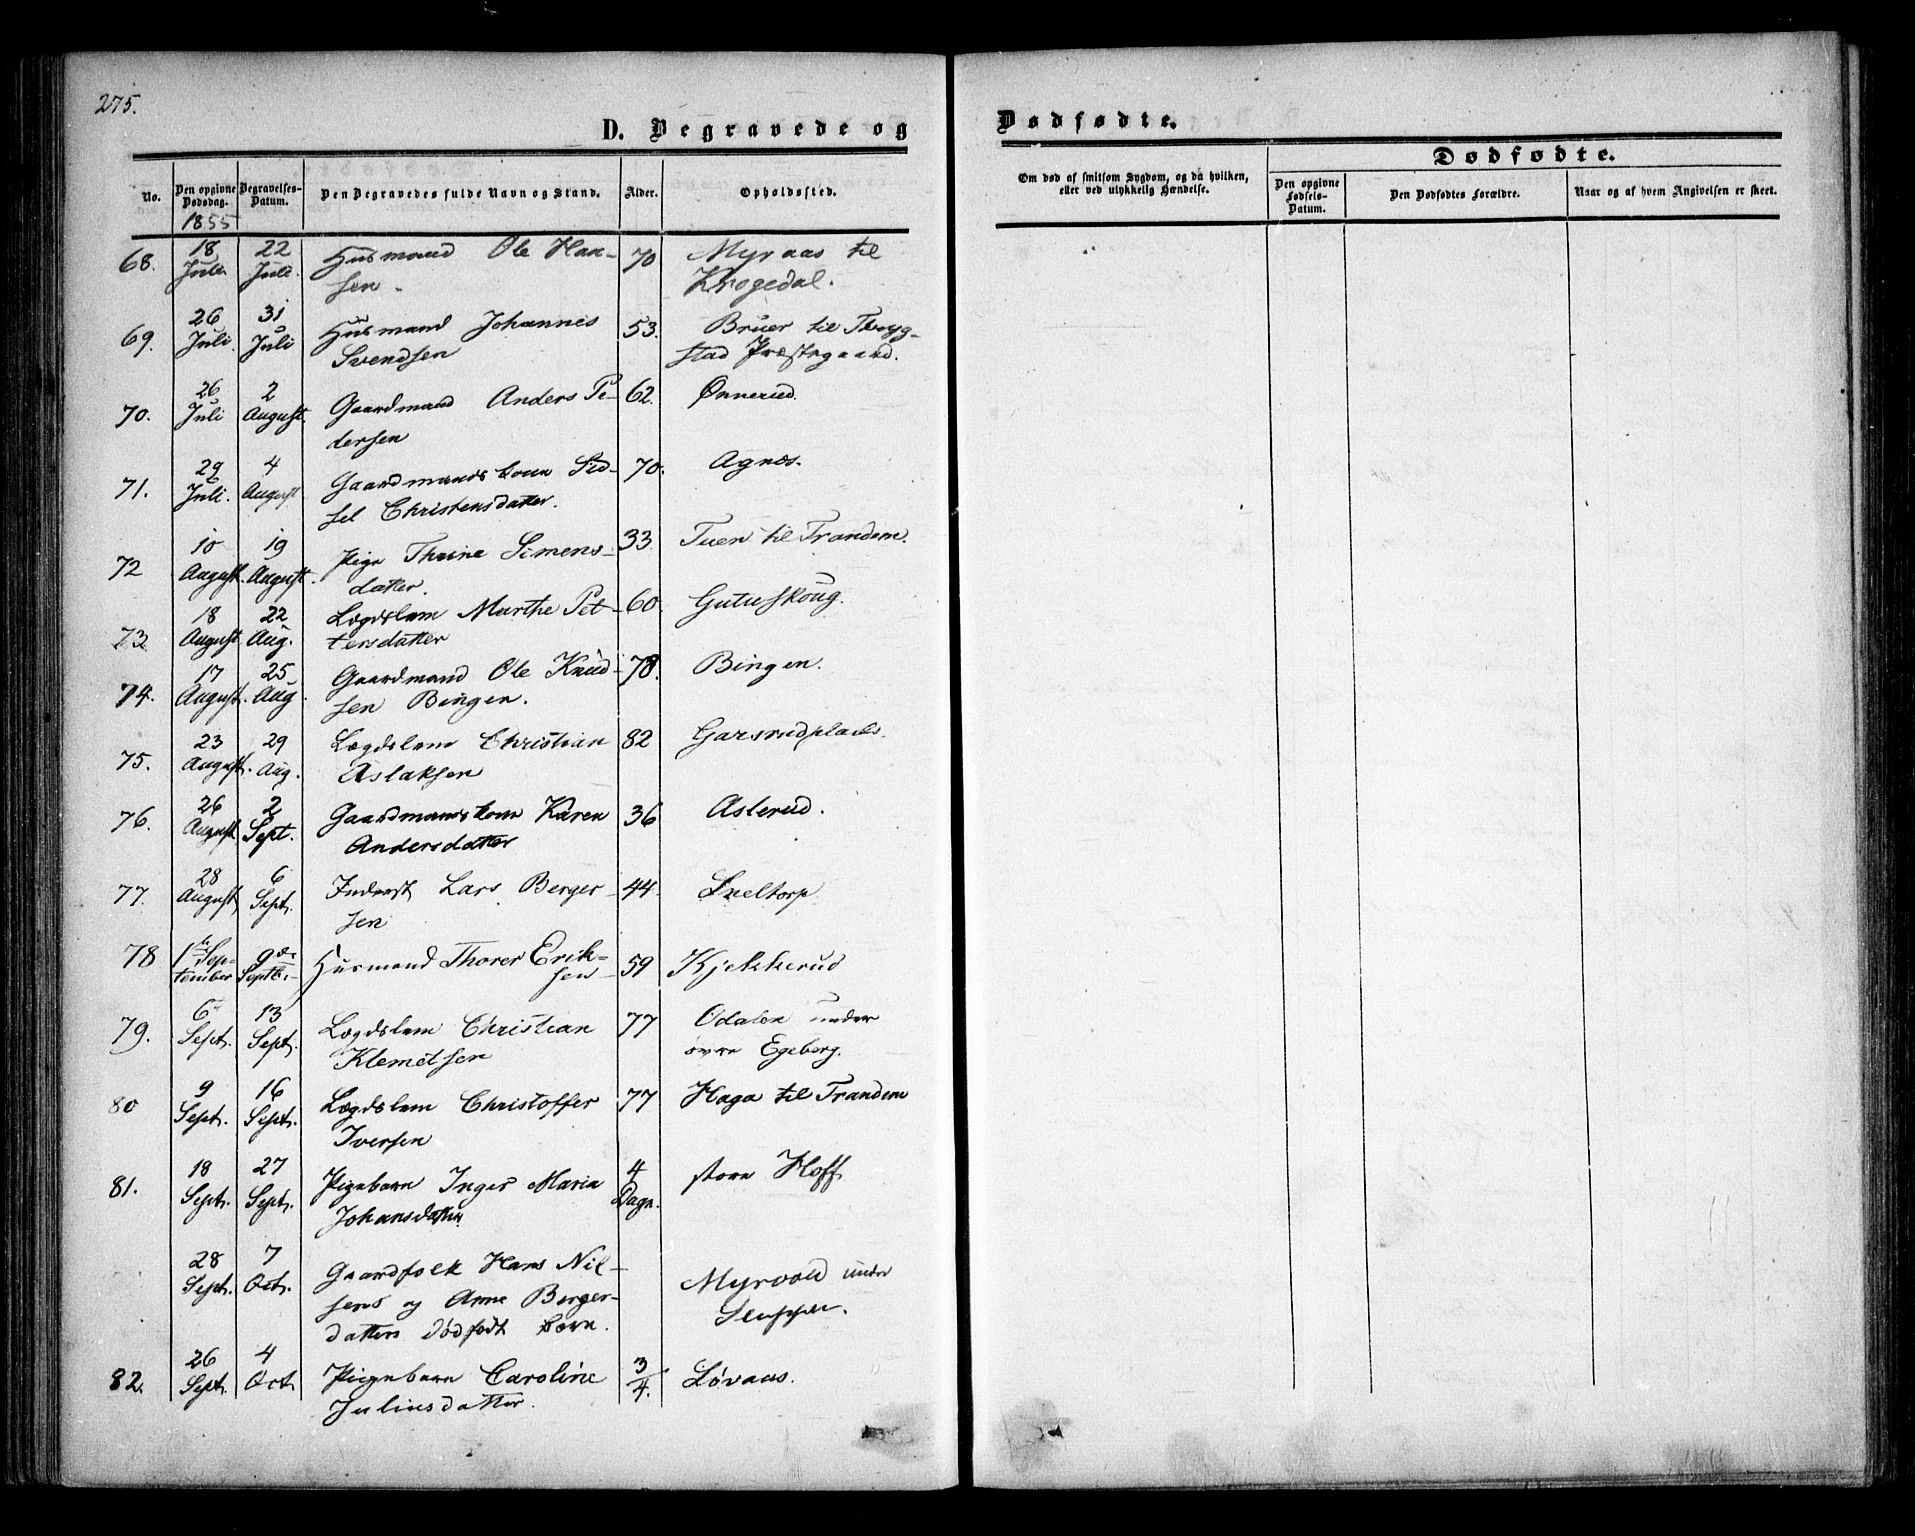 275.
D. Begravede og
Dødfødte.
No.
Den opgivne Dødsdag.
Begravelses-Datum.
Den Begravedes fulde Navn og Stand.
Alder.
Opholdssted.
Om død af smitsom Sygdom, og da hvilken,
eller ved ulykkelig Hændelse.
Dødfødte.
Den opgivne Fødsels-Datum.
Den Dødfødtes Forældre.
Naar og af hvem Angivelsen er skeet.
1855
68. 18 Juli 22 Juli. Husmand Ole Han- 70 Myraas til
sen. Krogedal.
69. 26 Juli. 31 Juli Husmand Johannes 53. Bruer til Thryg-
Svendsen stad Præstegaard.
70. 26 Juli 2 August. Gaardmand Anders Pe- 62. Ønnerud.
dersen
71. 29 Juli. 4 August Gaardmands kone Sid- 70. Agnæs.
sel Christensdatter.
72 10 August. 19 August. Pige Thrine Simens- 33. Tuen til Trandem.
datter.
73 18 August 22 Aug. Lægdslem Marthe Pet- 60. Gutuskoug.
tersdatter
74. 17 August. 25 Aug. Gaardmand Ole Knud- 78. Bingen.
sen Bingen.
75. 23 August. 29 Aug. Lægdslem Christian 82 Garsrudplads.
Aslaksen
76. 26 August 2 Sept. Gaardmands kone Karen 36 Asterud.
Andersdatter
77. 28 August 6 Sept. Inderst Lars Berger- 44.
sen
78 1ste September 9de Septb. Husmand Thorer Erik- 59 Kjekkerud
sen
79. 6 Sept. 13 Sept. Lægdslem Christian 77 Odalen under
Klemetsen øvre Egeberg.
80 9 Sept. 16 Sept. Lægdslem Christoffer 77 Haga til Trandem
Iversen
81. 18 Sept. 27 Sept. Pigebarn Inger Maria 4 Dage. store Hoff
Johansdatter
28 Sept. 7 Oct. Gaardfolk Hans Nil-
sens og Anne Berger- Myrvold under
datters dødfødt Barn.
82. 26 Sept. 4 Oct Pigebarn Caroline 3/4. Løvaas.
Juliusdatter.